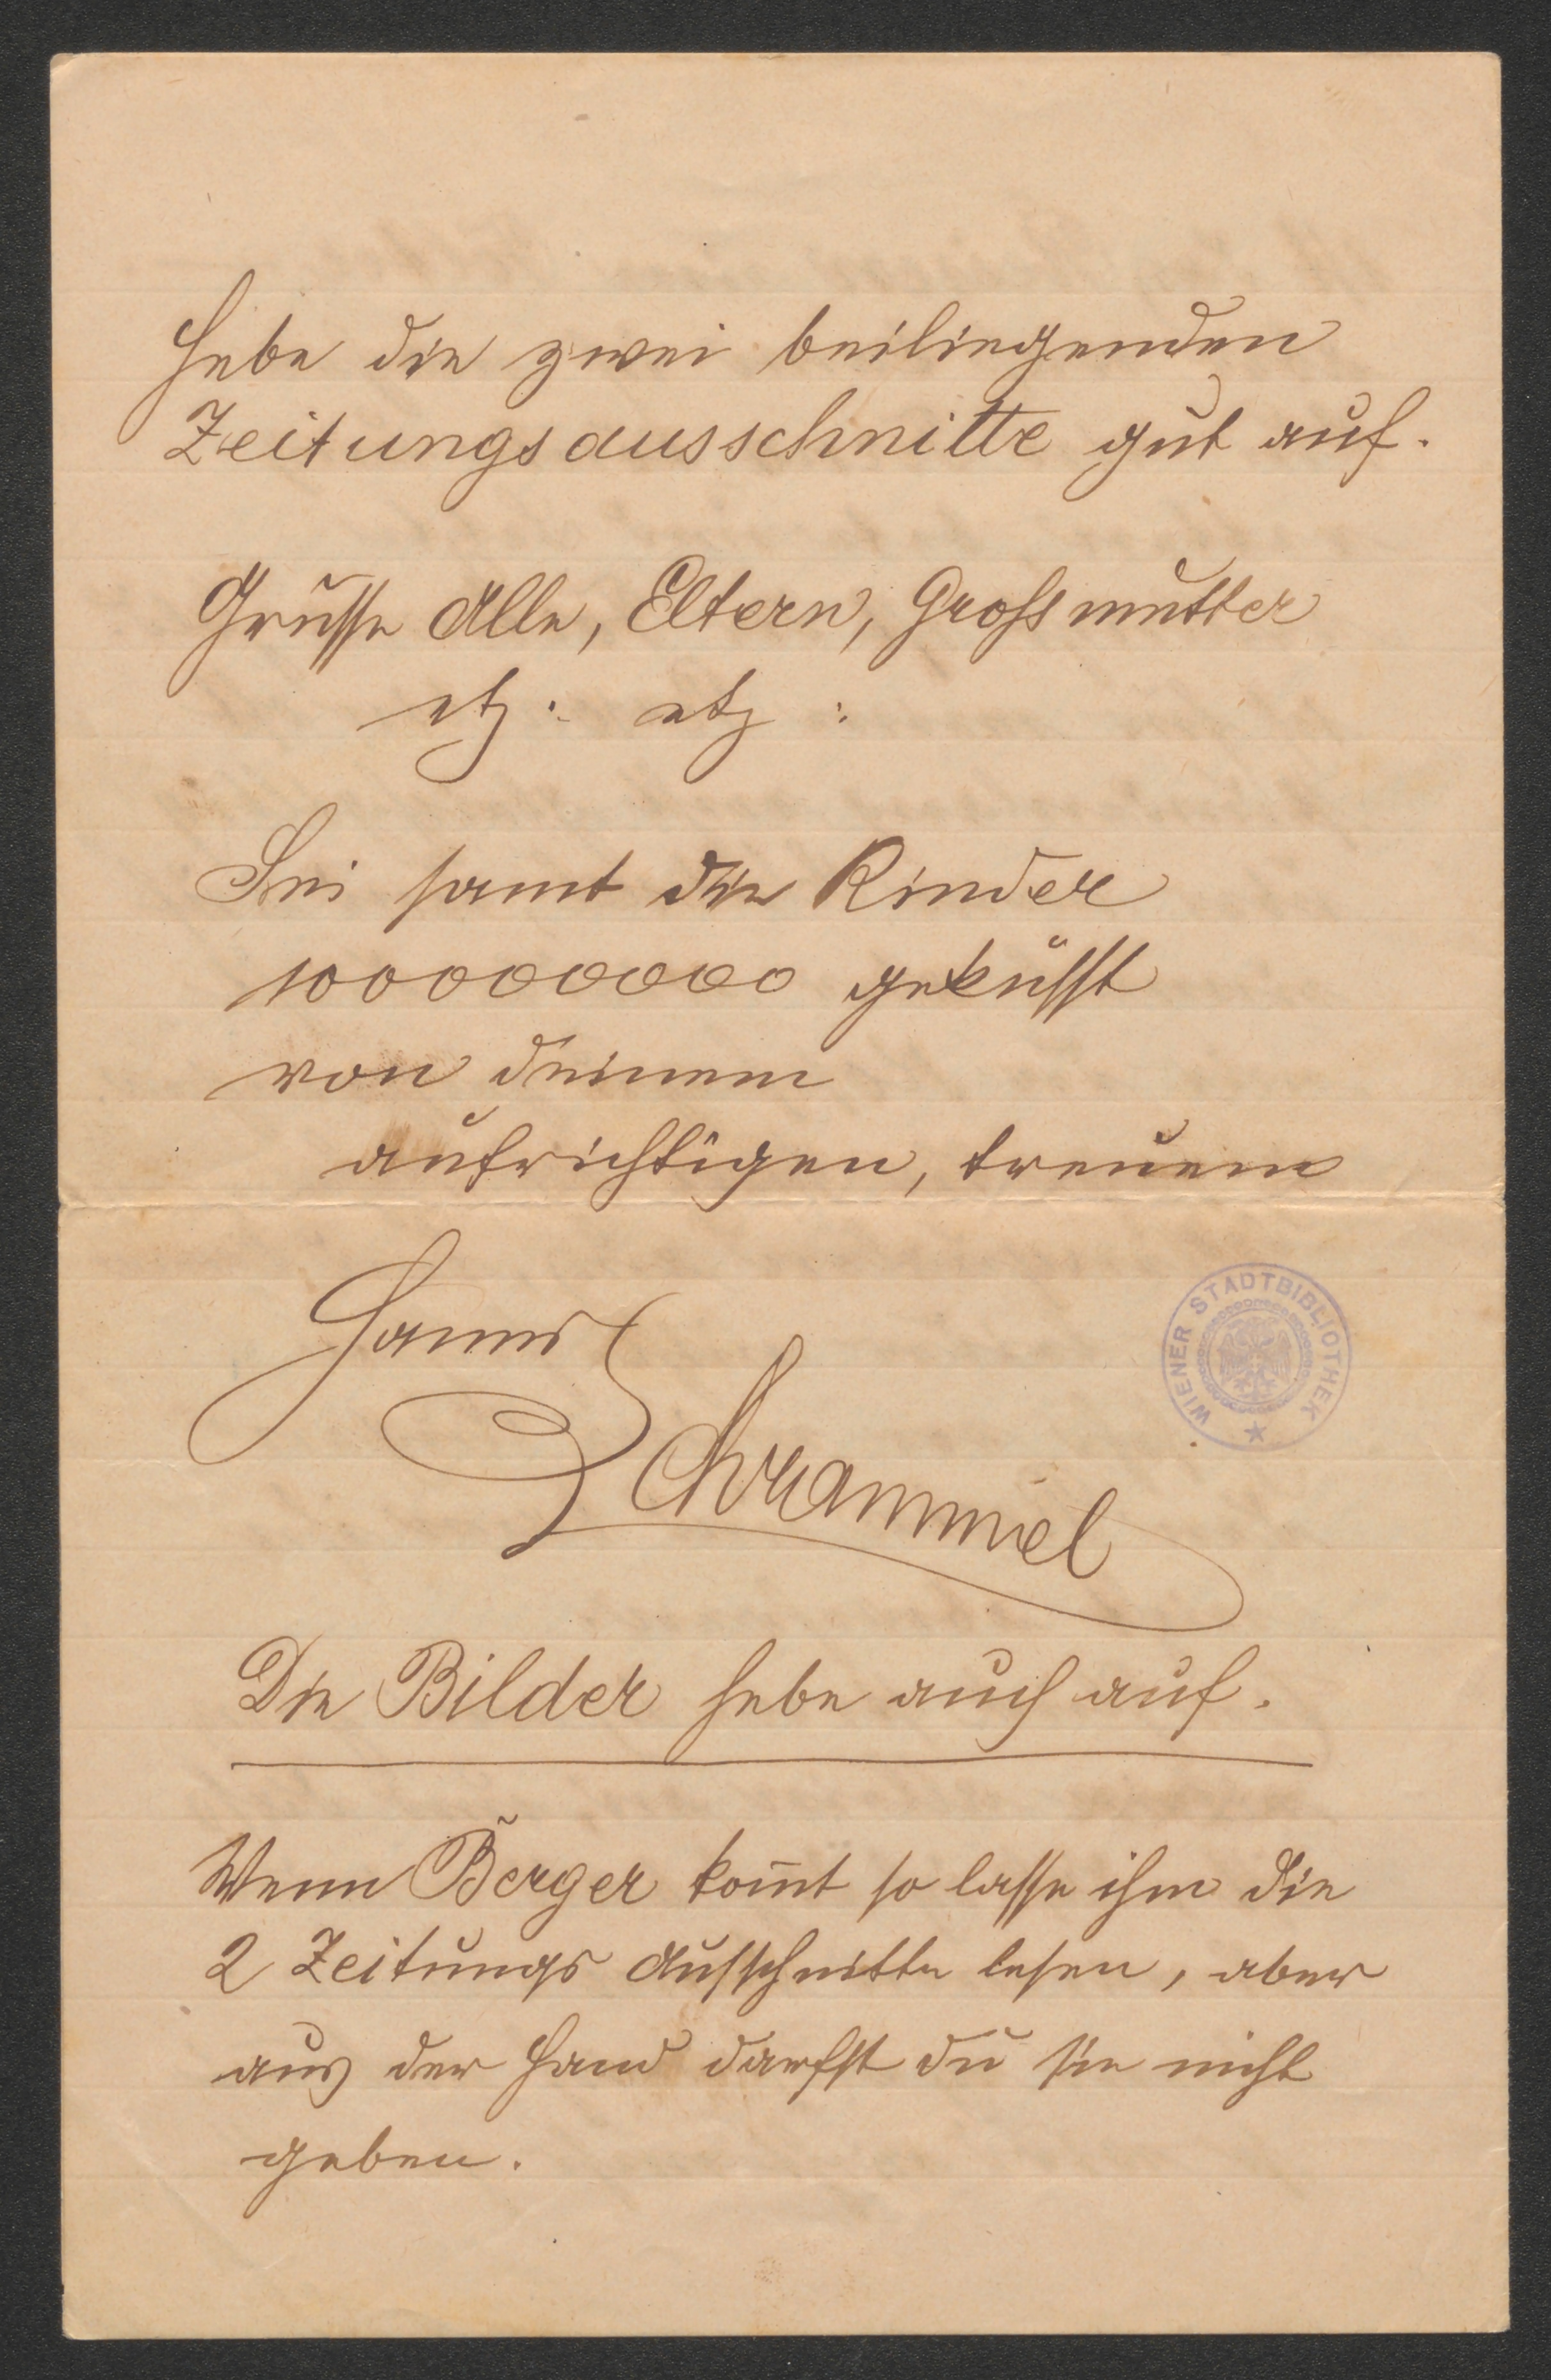 Hebe die zwei beiliegenden
Zeitungsausschnitte gut auf.
Grüsse Alle, Eltern, Grossmutter
etz: etz:
Sei samt die Kinder
1000000000 geküsst
von deinem
aufrichtigen, treuem
Hanns
Schrammel
WIENER STADTBIBLIOTHEK
Die Bilder hebe auch auf.
Wenn Berger kom̄t so lasse ihm die
2 Zeitungs Ausschnitte lesen, aber
aus der Hand darfst du sie nicht
geben.